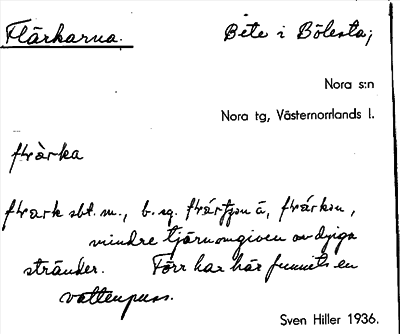 Flärkarna. Bete i Bölesta;
Nora s:n
Nora tg, Västernorrlands l.
flàrka
flark sbt. m., b. sg.
mindre tjärn omgiven av dyiga
stränder. Förr har här funnits en
vattenpuss.
Sven Hiller 1936.